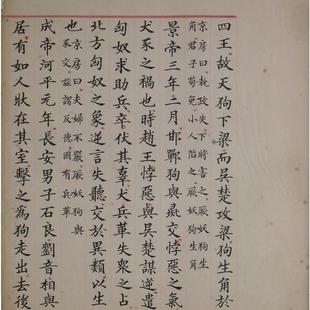 四王故天狗下梁而吴楚攻梁狗生角於
京房曰執政失下將害之厥妖狗生
角君子苟免小人陷之厥妖狗生角
景帝三年二月邯鄲狗與彘交悖惡之氣
犬豕之禍也時趙王悖惡與吴楚謀逆遣
匈奴求助兵卒伏其辜犬兵革失衆之占
北方匈奴之象逆言失聽交於異類以生
也京房曰夫婦不嚴厥妖狗與
豕交兹謂反德國有兵革
成帝河平元年長安男子石良劉音相與
居有如人狀在其室擊之為狗走出去後